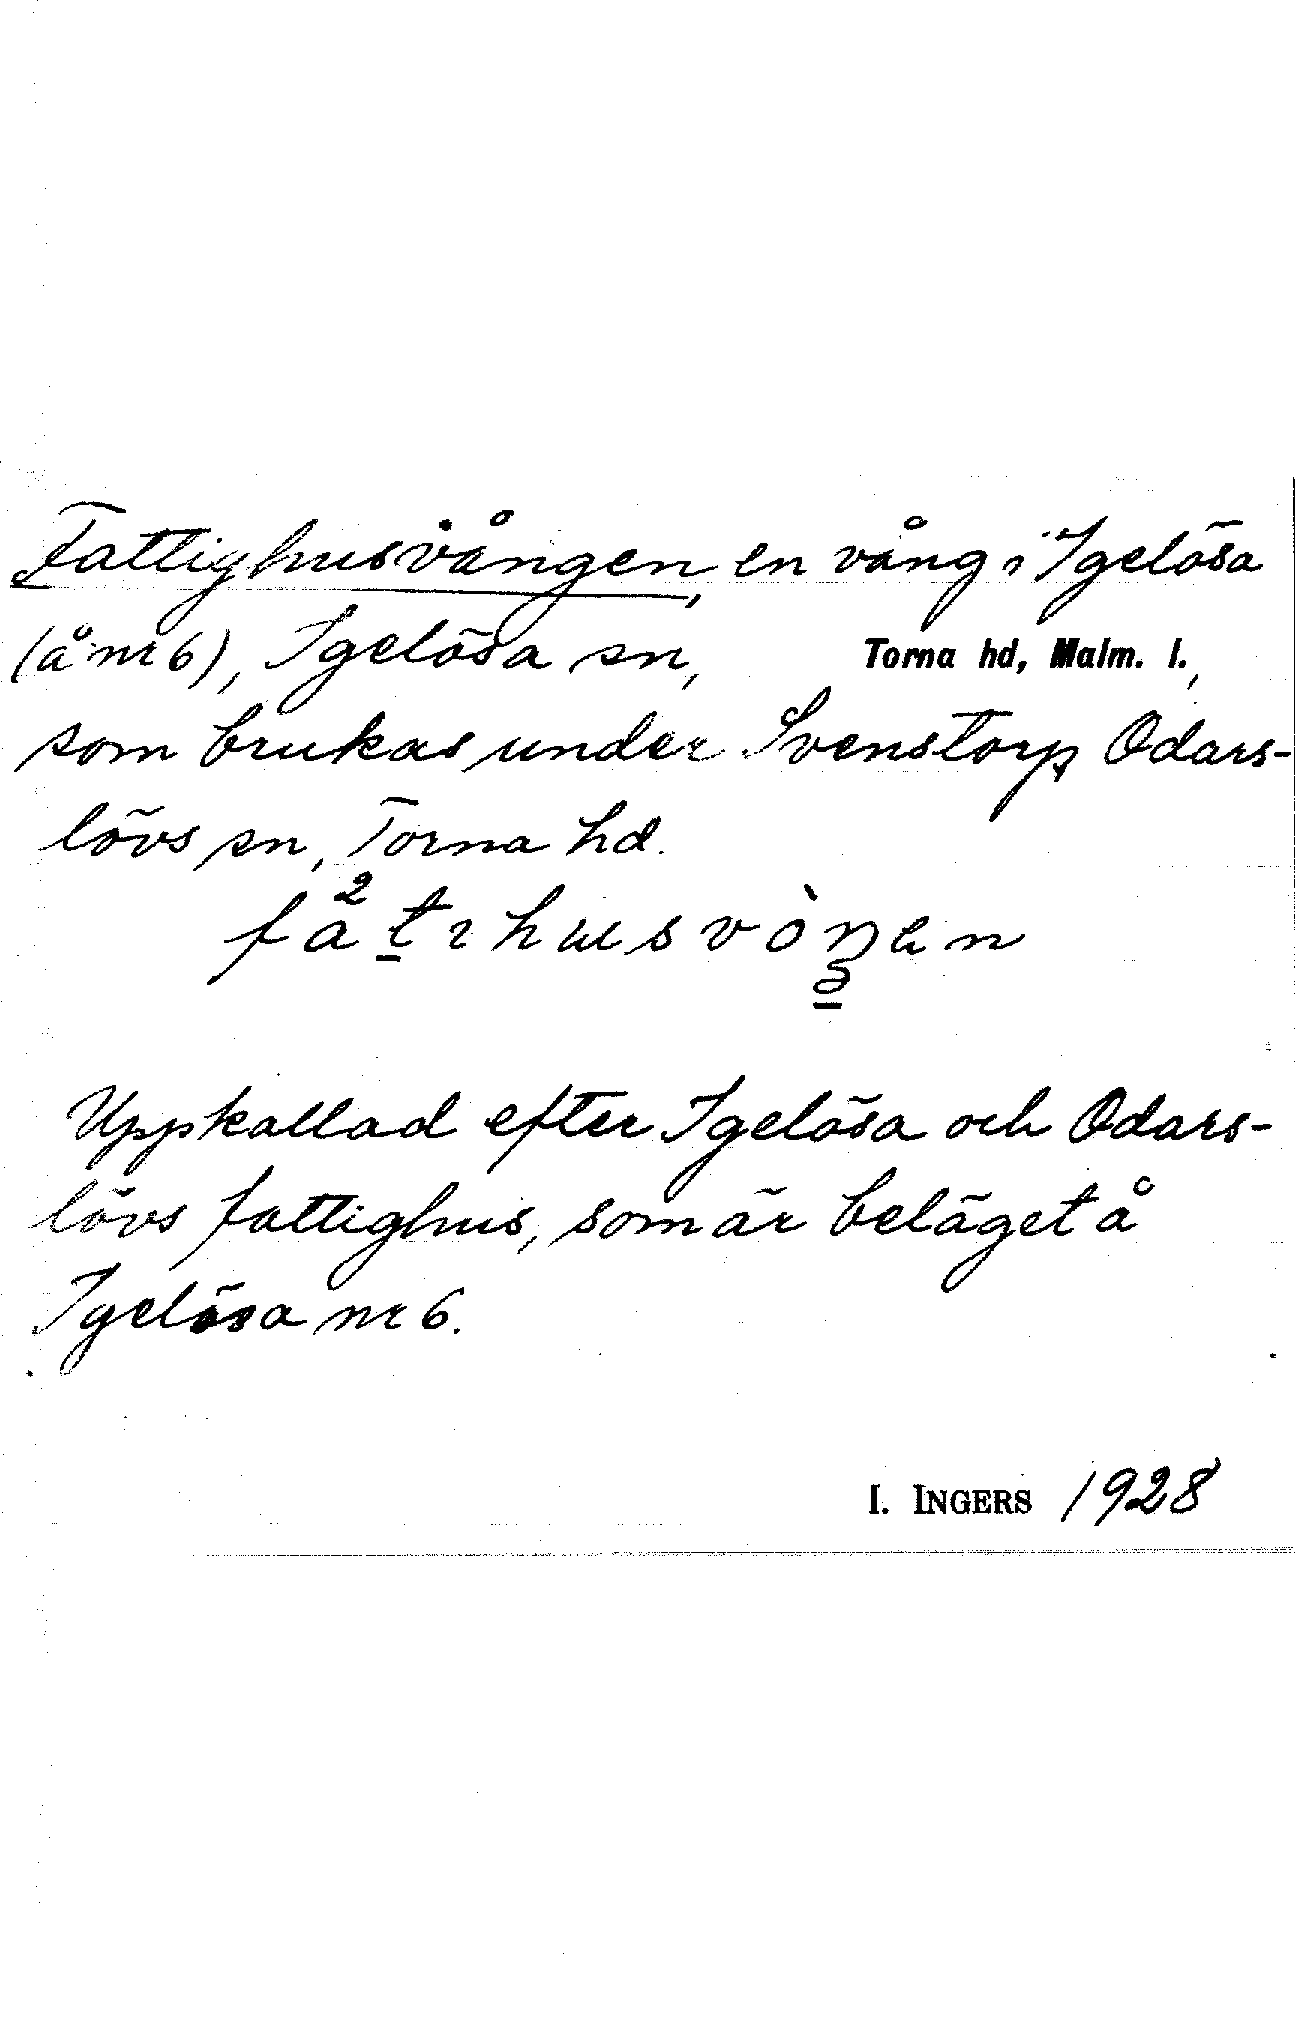 Fattighusvången, en vång i Igelösa
(å nr 6), Igelösa sn, Torna hd, Malm. l.,
som brukas under Svenstorp Odars-
lövs sn, Torna hd.
få²tıhusvòŋen
Uppkallad efter Igelösa och Odars-
lövs fattighus, som är beläget å
Igelösa nr 6.
I. INGERS 1928